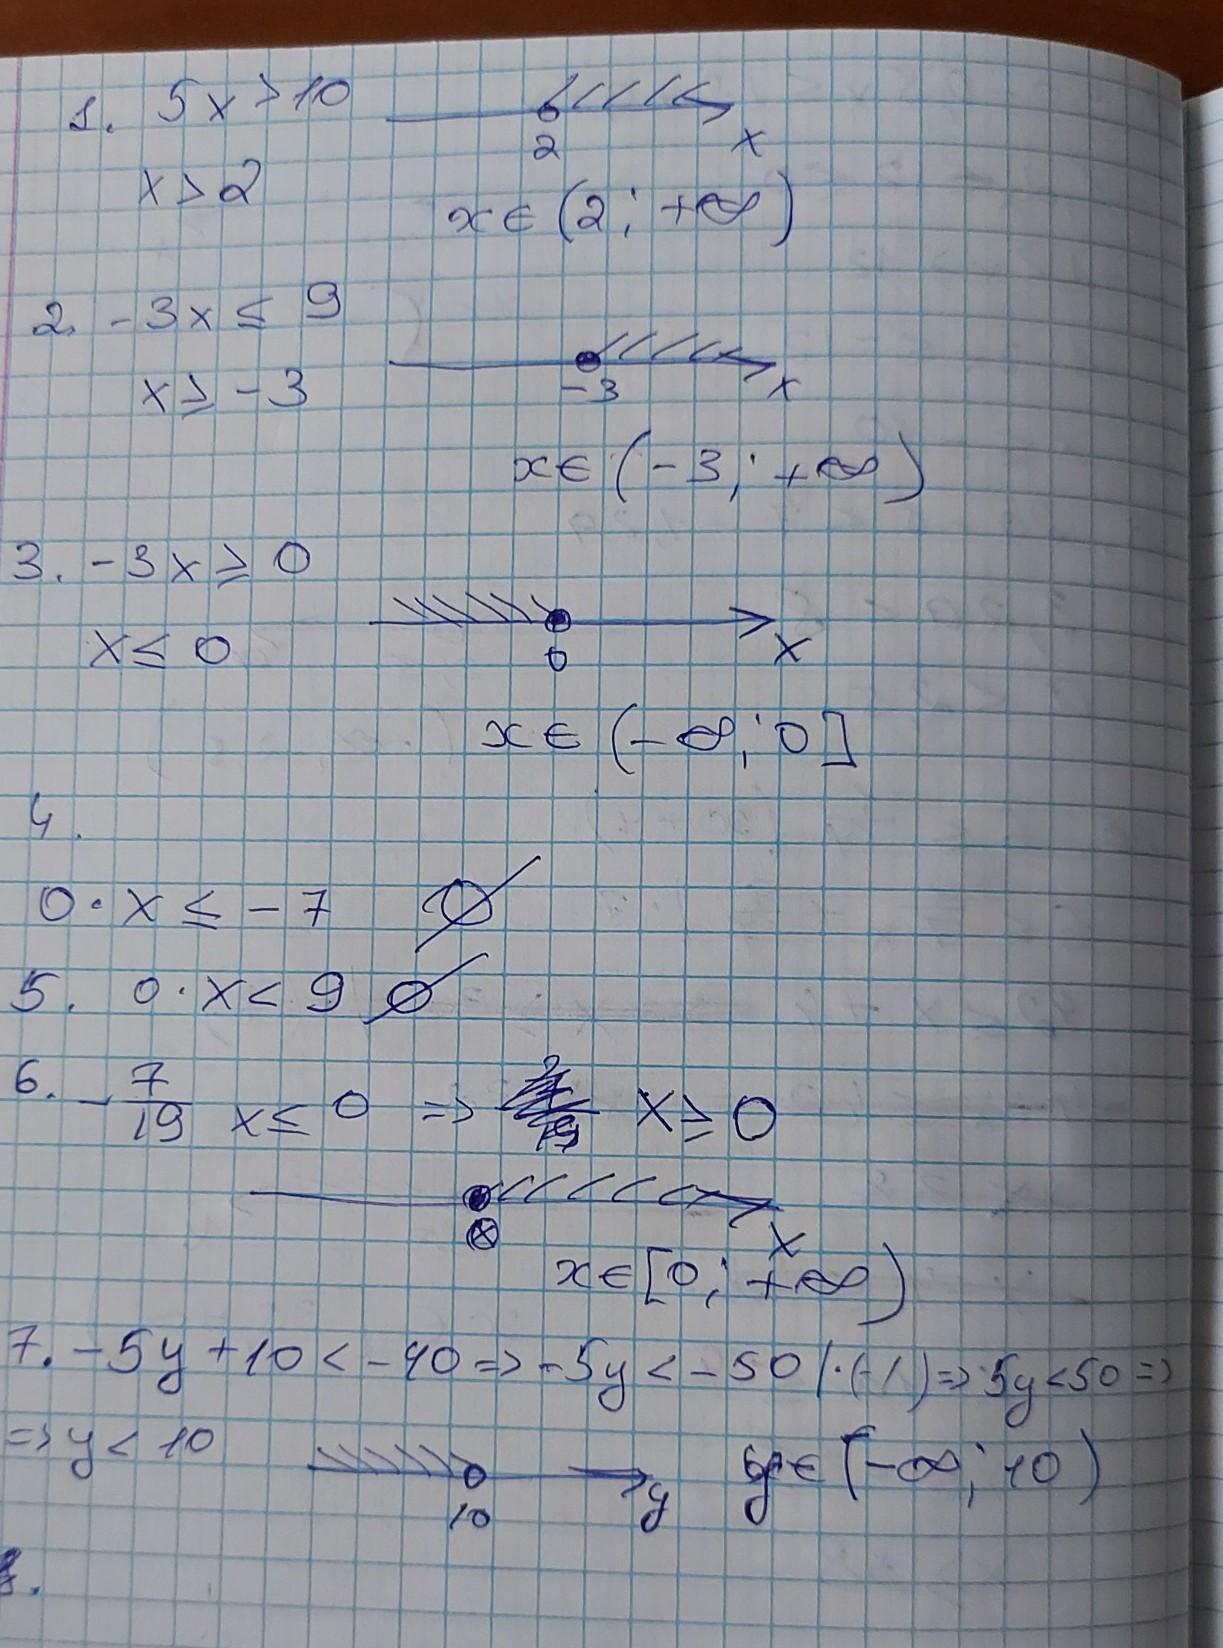 1. 5x > 10
2 x
x > 2
x ∈ (2; +∞)
2. -3x ≤ 9
-3 x
x ≥ -3
x ∈ (-3; +∞)
3. -3x ≥ 0
x ≤ 0
0 x
x ∈ (-∞; 0]
4.
0 · x ≤ -7 ∅
5. 0 · x < 9 ∅
6. -7/19 x ≤ 0 => x ≥ 0
x
x ∈ [0; +∞)
7. -5y + 10 < -40 => -5y < -50 |·(-1) => 5y < 50 =>
=> y < 10
10 y
y ∈ (-∞; 10)
8.